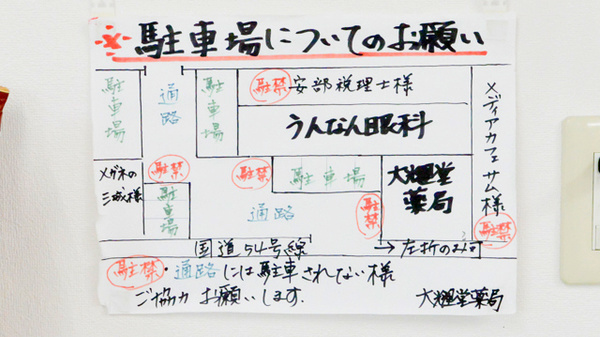 ※駐車場についてのお願い
駐車場
通路
駐車場
駐禁 安部税理士様
うんなん眼科
メディアカフェサム様
メガネの三城様
駐禁
駐車場
駐禁
駐車場
通路
駐禁
大輝堂薬局
駐禁
国道54号線
→左折のみ可
駐禁・通路には駐車されない様
ご協力お願いします.
大輝堂薬局